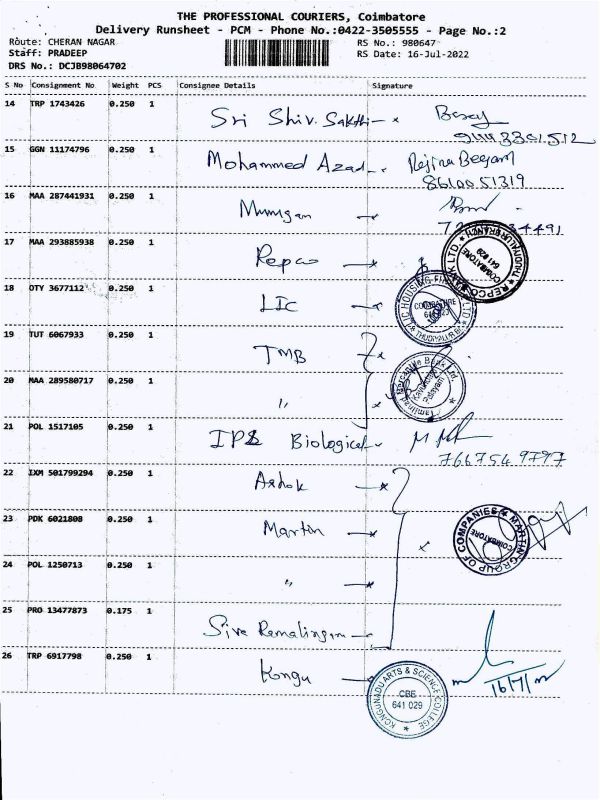 THE PROFESSIONAL COURIERS, Coimbatore
Delivery Runsheet - PCM - Phone No.:0422-3505555 - Page No.:2
Route: CHERAN NAGAR
Staff: PRADEEP
DRS No.: DCJB98064702
RS No.: 980647
RS Date: 16-Jul-2022
S No Consignment No Weight PCS Consignee Details Signature
14 TRP 1743426 0.250 1 Sri Shiv. Sakthi
15 GGN 11174796 0.250 1 Mohammed Azad Rejina Beegam
8610051319
16 MAA 287441931 0.250 1 Murugan
17 MAA 293885938 0.250 1 Repco
REPCO BANK LTD. THUDIYALUR BRANCH COIMBATORE 641 029
18 OTY 3677112 0.250 1 LIC
LIC HOUSING FIN LTD THUDIYALUR COIMBATORE
19 TUT 6067933 0.250 1 TMB
Tamilnad Mercantile Bank Ltd. Palayam
20 MAA 289580717 0.250 1 "
21 POL 1517105 0.250 1 IPS Biological
7667549797
22 IXM 501799294 0.250 1 Ashok
23 PDK 6021808 0.250 1 Martin
MARTIN GROUP OF COMPANIES COIMBATORE
24 POL 1250713 0.250 1 "
25 PRO 13477873 0.175 1 Siva Ramalingam
26 TRP 6917798 0.250 1 Kongu
KONGUNADU ARTS & SCIENCE COLLEGE CBE 641 029
16/7/22